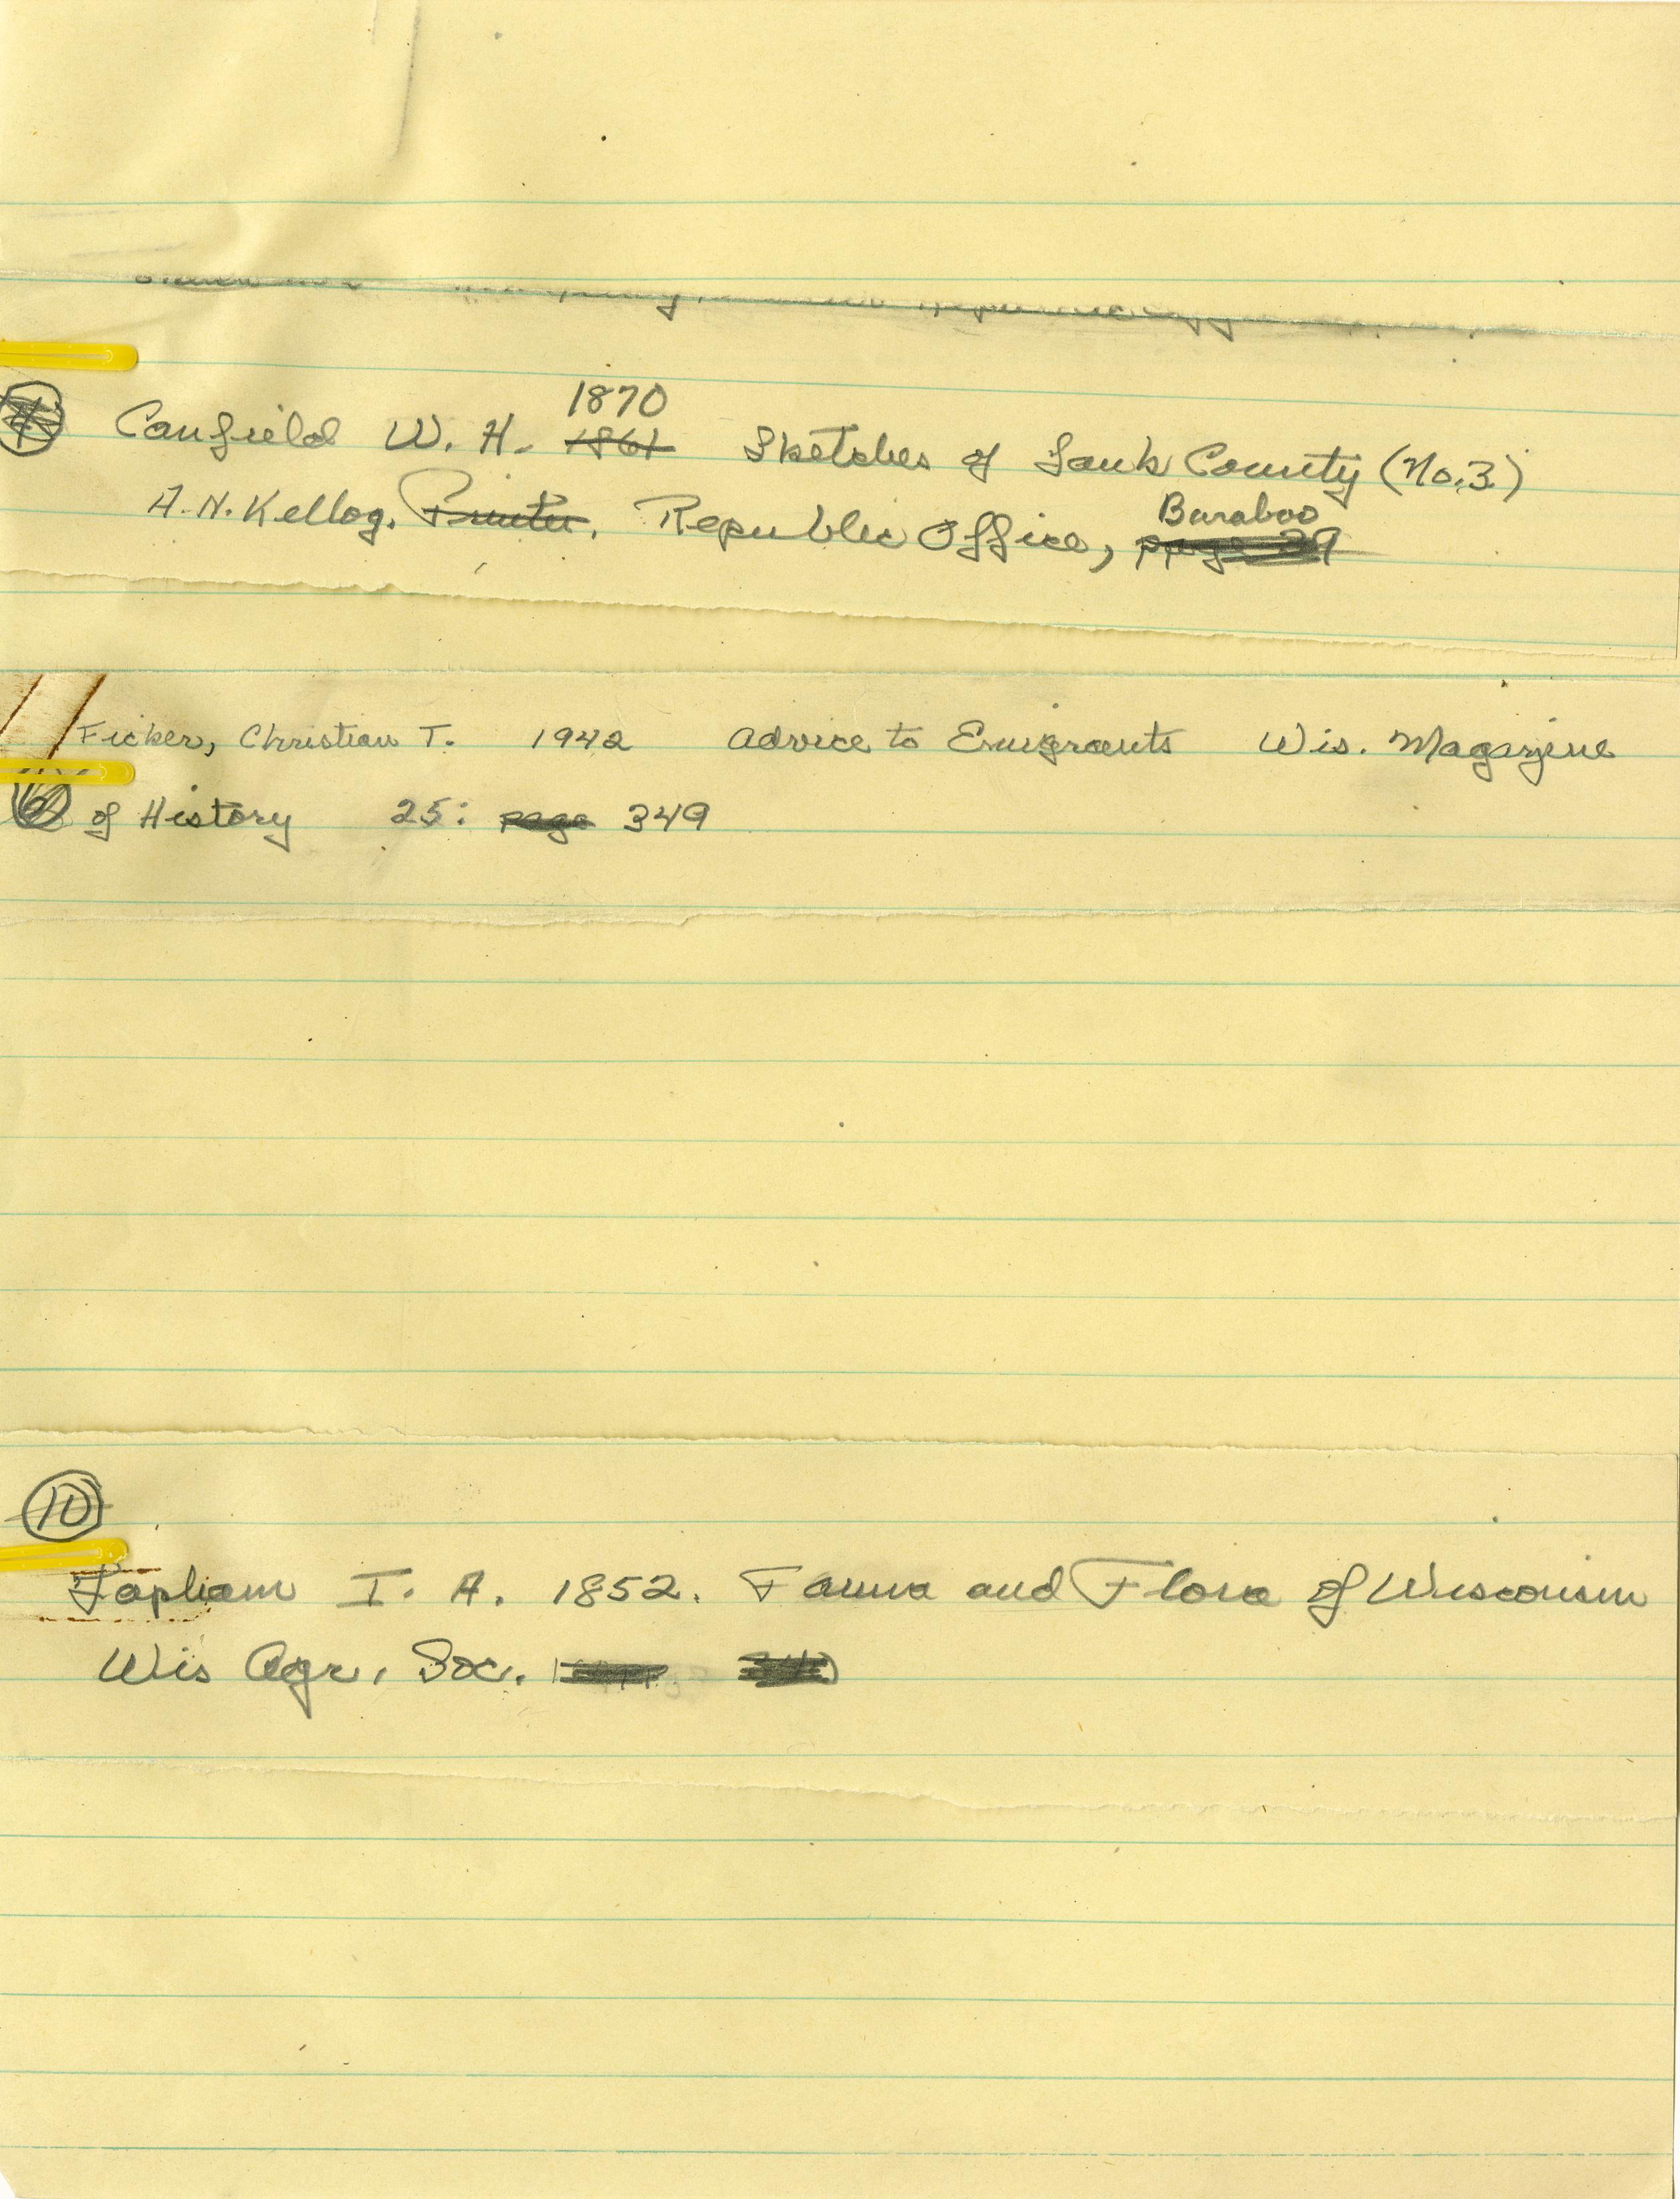 1870
Canfield W. H. 1861 Sketches of Sauk County (No. 3)
Baraboo
A. N. Kellog. Printer. Republic Office, page 39
Ficker, Christian T. 1942 Advice to Emigrants Wis. Magazine
of History 25: page 349
10
Lapham I. A. 1852. Fauna and Flora of Wisconsin
Wis Agr. Soc.